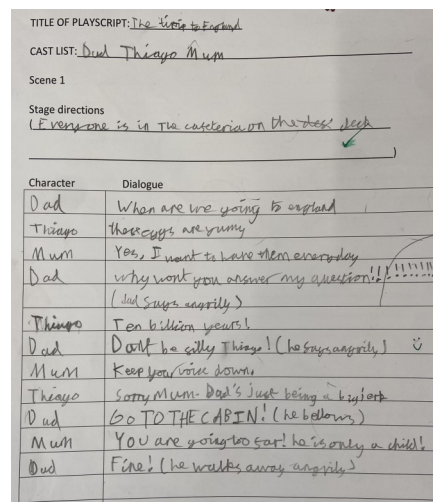 TITLE OF PLAYSCRIPT: The to England
CAST LIST: Dad Thiago Mum
Scene 1
Stage directions
(Everyone is in The cafeteria on the deck
)
Character Dialogue
Dad When are we going to england
Thiago these eggs are yumy
Mum Yes, I want to have them everyday
Dad why wont you answer my question!!!!!!!!!
(dad says angrily)
Thiago Ten billion years!
Dad Dont be silly Thiago! (he says angrily)
Mum Keep your voice down.
Thiago Sorry Mum. Dad's just being a big
Dad GO TO THE CABIN! (he bellows)
Mum You are going too far! he is only a child!
Dad Fine! (he walks away angrily)